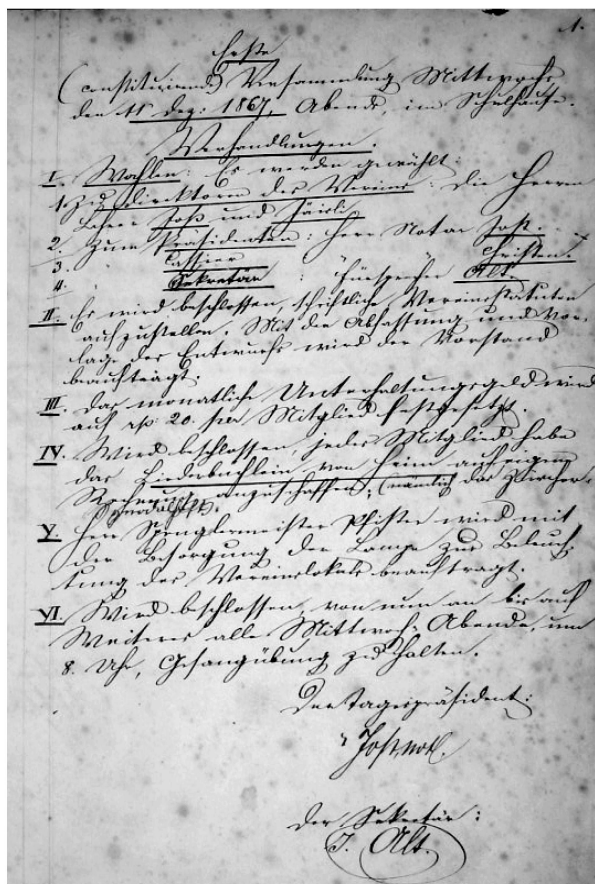 1.
Erste
(constituirende) Versammlung Mittwochs
den 11 Dez: 1867, Abends, im Schulhause.
Verhandlungen.
I. Wahlen: Es werden gewählt:
1. Zu Direktoren des Vereins: die Herren
Lehrer Joß und
2. Zum Präsidenten: Herr Notar Jost.
3. " Cassier Christen.
4. " Sekretär : Fürsprecher Alt.
II. Es wird beschlossen, schriftliche Vereinsstatuten
aufzustellen. Mit der Abfassung und Vor-
lage des Entwurfs wird der Vorstand
beauftragt.
III. Das monatliche Unterhaltungsgeld wird
auf rp. 20. per Mitglied festgesetzt.
IV. Wird beschlossen, jedes Mitglied habe
das Liederbüchlein von Heim auf eigene
Rechnung anzuschaffen, (nämlich das Zürcher-
Synodalheft).
V. Herr Spenglermeister Pfister wird mit
der Besorgung der Lampe zur Beleuch-
tung des Vereinslokals beauftragt.
VI. Wird beschlossen, von nun an bis auf
Weiteres alle Mittwoch Abende, um
8. Uhr, Gesangübung zu halten.
Der Tagespräsident:
Jost, Not.
Der Sekretär:
J. Alt.